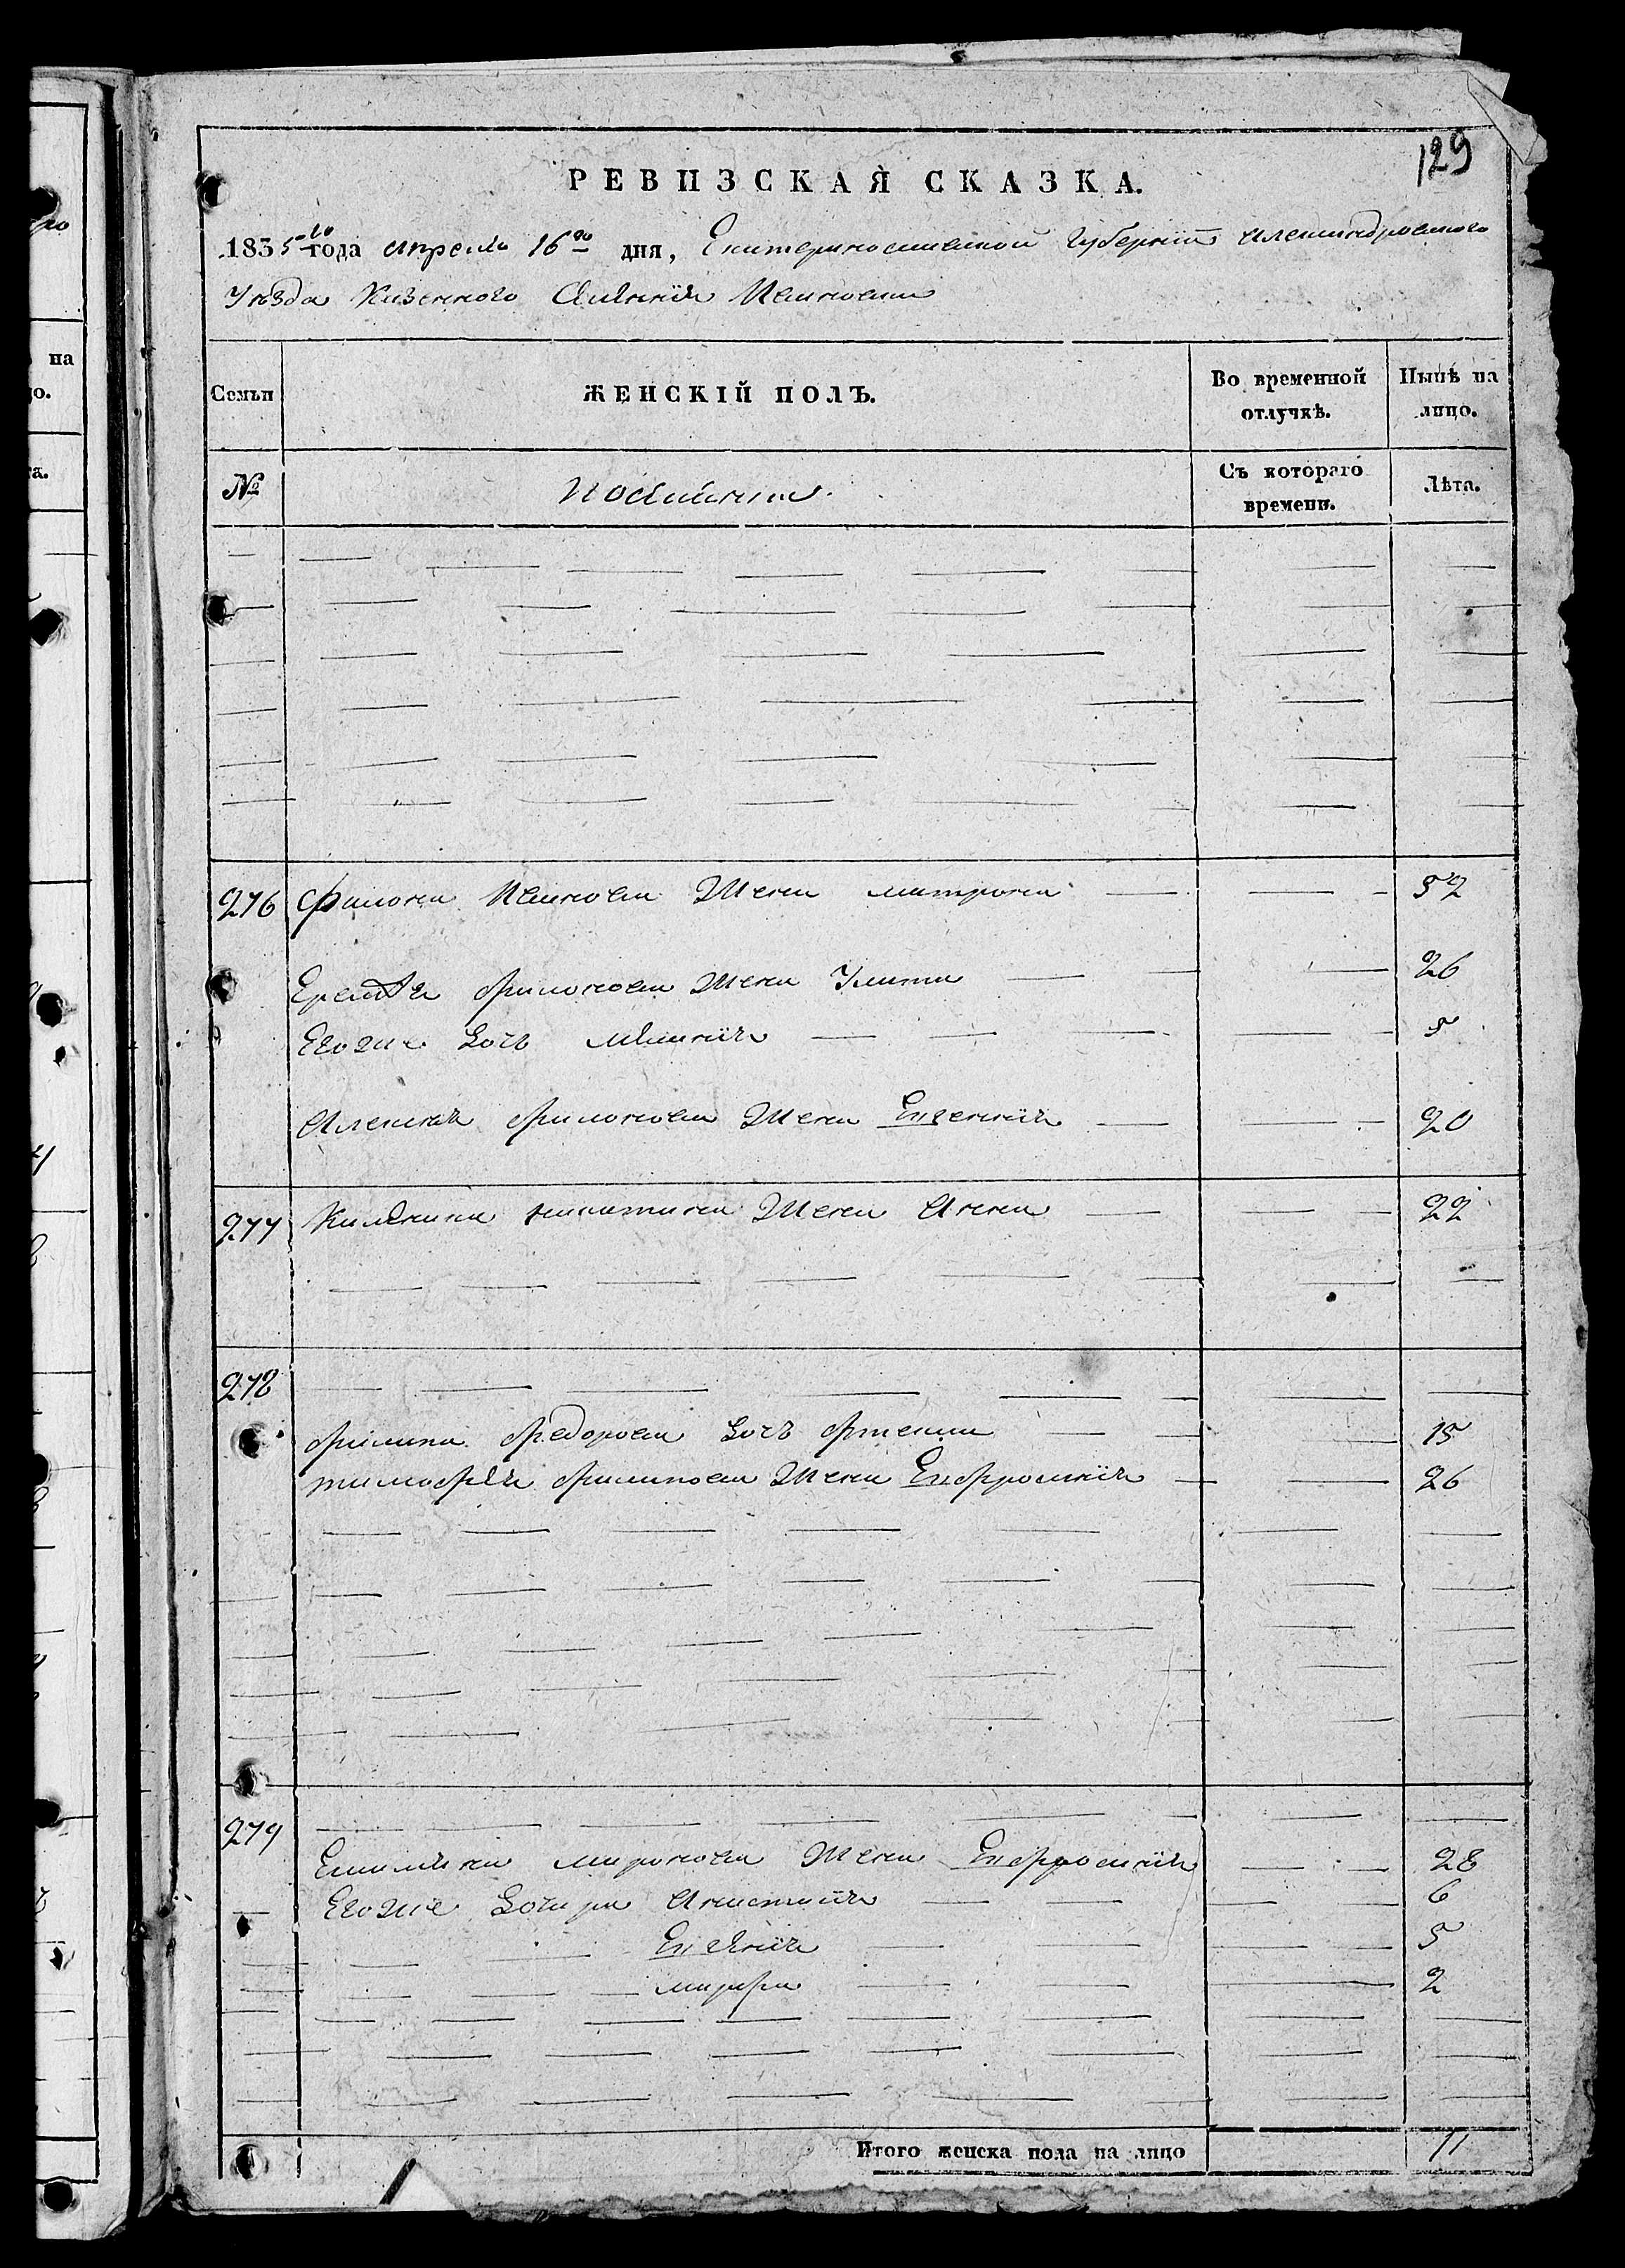 129
РЕВИЗСКАЯ СКАЗКА.
1835 го года апреля 16 го дня, Екатериносливской Губернiи Александровского
Уезда Казенного Селенiя Ивановки
Семьи
ЖЕНСКІЙ ПОЛЪ.
Во временной отлучкѣ.
Нынѣ на лицо.
№
Съ котораго времени.
Лѣта.
276 Филона Иванова Жена матрона 52
Еремѣя филонова Жена Улита 26
Его же Дочь 5
Алексея филонова Жена Евгенiя 20
277 никитина Жена Анна 22
278
филипа федорова Дочь 15
тимофѣя филипова Жена Евфросинiя 26
279
Емилияна миронова Жена Евфросинiя 28
Его же Дочери Анастасiя 6
5
марфа 2
Итого женска пола на лицо 11
на
о.